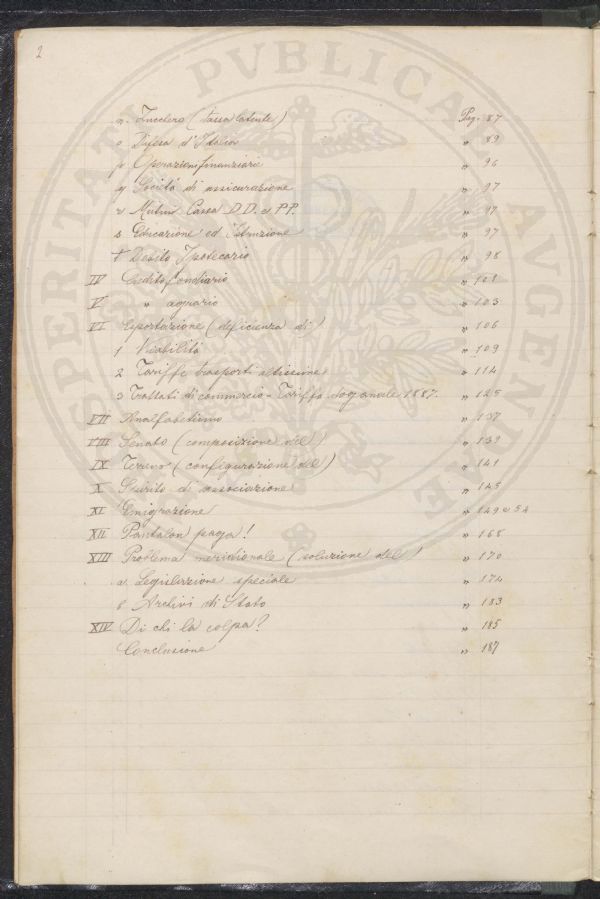 2
n. Zucchero (tassa latente) Pag. 87
o Difesa d'Italia " 89
p Operazioni finanziarie " 96
q Società di assicurazione " 97
r Mutui Cassa D.D. e P.P. " 97
s Educazione ed Istruzione " 97
t Debito Ipotecario " 98
IV Credito fondiario " 101
V " agrario " 103
VI Esportazione (deficienza di) " 106
1 Viabilità " 109
2 Tariffe trasporti altissime " 114
3 Trattati di commercio - Tariffa doganale 1887. " 125
VII Analfabetismo " 137
VIII Senato (composizione del) " 139
IX Terreno (configurazione del) " 141
X Spirito di associazione " 145
XI Emigrazione " 149 a 54
XII Pantalon paga! " 168
XIII Problema meridionale (soluzione del) " 170
a. Legislazione speciale " 174
b Archivi di Stato " 183
XIV Di chi la colpa? " 185
Conclusione " 187
PROSPERITATI PVBLICAE AVGENDAE